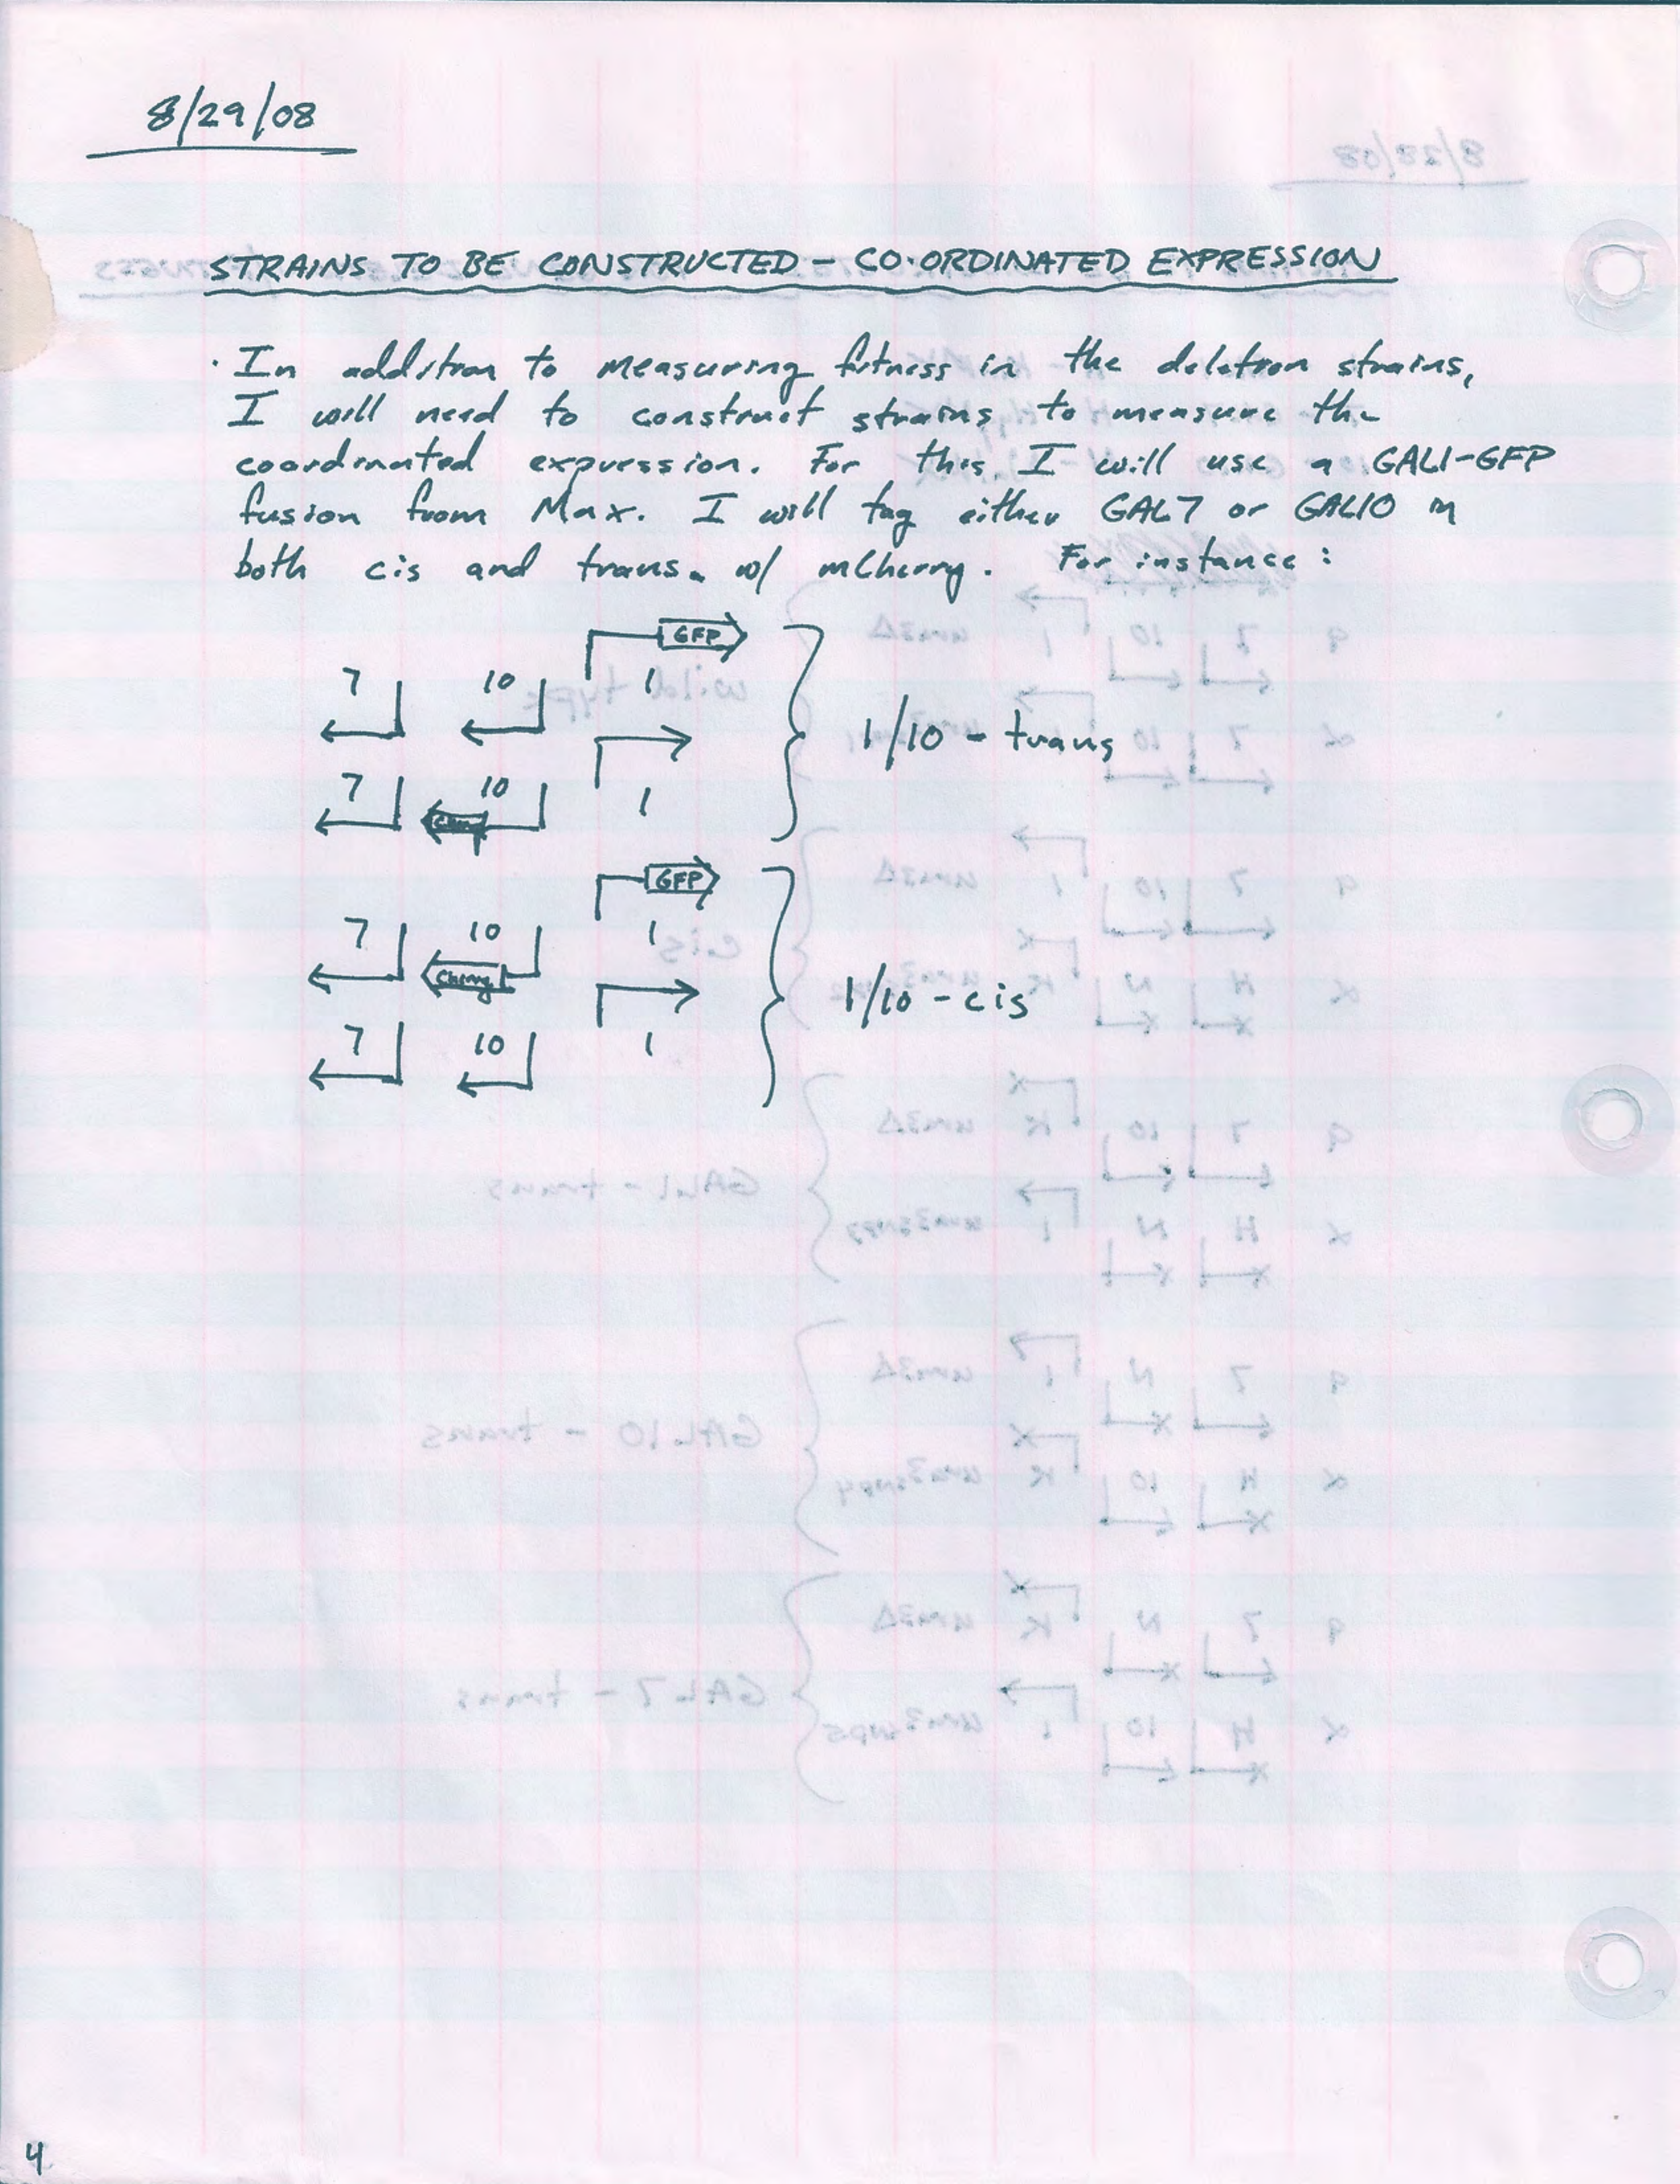 8/29/08
STRAINS TO BE CONSTRUCTED - CO-ORDINATED EXPRESSION
· In addition to measuring fitness in the deletion strains,
I will need to construct strains to measure the
coordinated expression. For this, I will use a GAL1-GFP
fusion from Max. I will tag either GAL7 or GAL10 in
both cis and trans. w/ mCherry. For instance:
GFP
7 10 1
1/10 - trans
7 10 1
GFP
7 10 1
Cherry
1/10 - cis
7 10 1
4